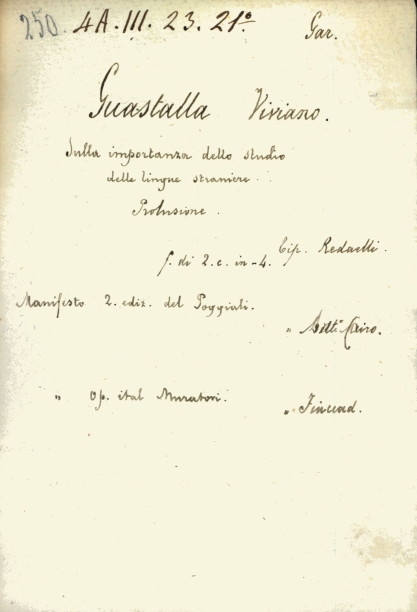 250. 4A. III. 23. 21.º Gar.
Guastalla Viviano.
Sulla importanza dello studio
delle lingue straniere.
Prolusione.
Tip. Redaelli.
f. di 2. c. in-4.
Manifesto 2. ediz. del Poggiali.
"
" Op. ital Muratori.
"